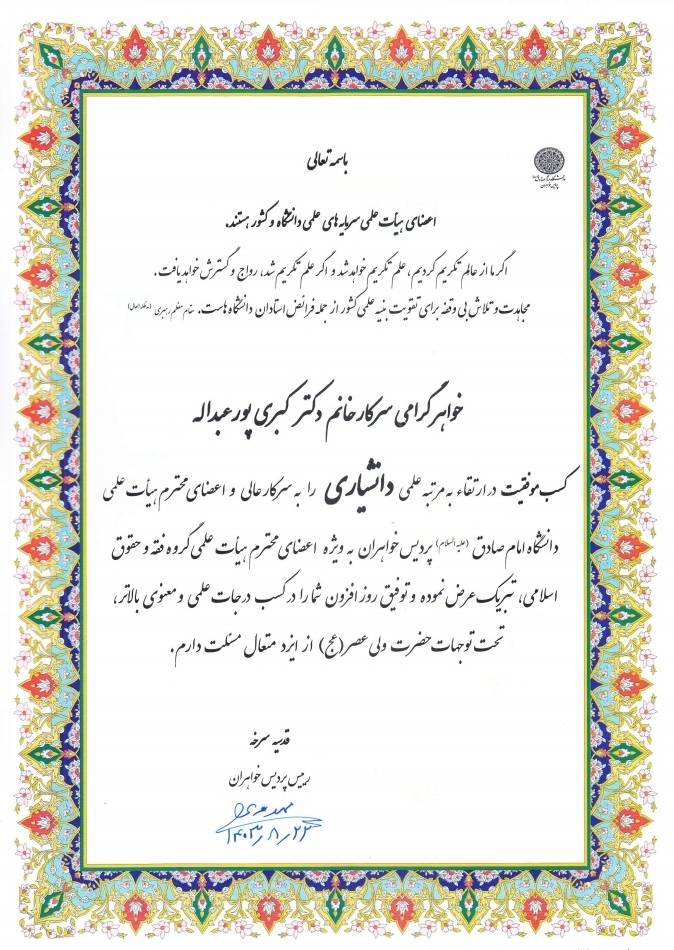 باسمه تعالی
دانشگاه امام صادق علیه السلام
پردیس خواهران
اعضای هیأت علمی سرمایه های علمی دانشگاه و کشور هستند.
اگر ما از عالم تکریم کردیم، علم تکریم خواهد شد و اگر علم تکریم شد، رواج و گسترش خواهد یافت.
مجاهدت و تلاش بی وقفه برای تقویت بنیه علمی کشور از جمله فرائض استادان دانشگاه هاست. مقام معظم رهبری (مدظله العالی)
خواهر گرامی سرکار خانم دکتر کبری پورعبداله
کسب موفقیت در ارتقاء به مرتبه علمی دانشیاری را به سرکارعالی و اعضای محترم هیأت علمی
دانشگاه امام صادق (علیه السلام) پردیس خواهران به ویژه اعضای محترم هیأت علمی گروه فقه و حقوق
اسلامی، تبریک عرض نموده و توفیق روز افزون شما را در کسب درجات علمی و معنوی بالاتر،
تحت توجهات حضرت ولی عصر(عج) از ایزد متعال مسئلت دارم.
قدسیه سرخه
رییس پردیس خواهران
۱۴۰۳/۸/۲۳